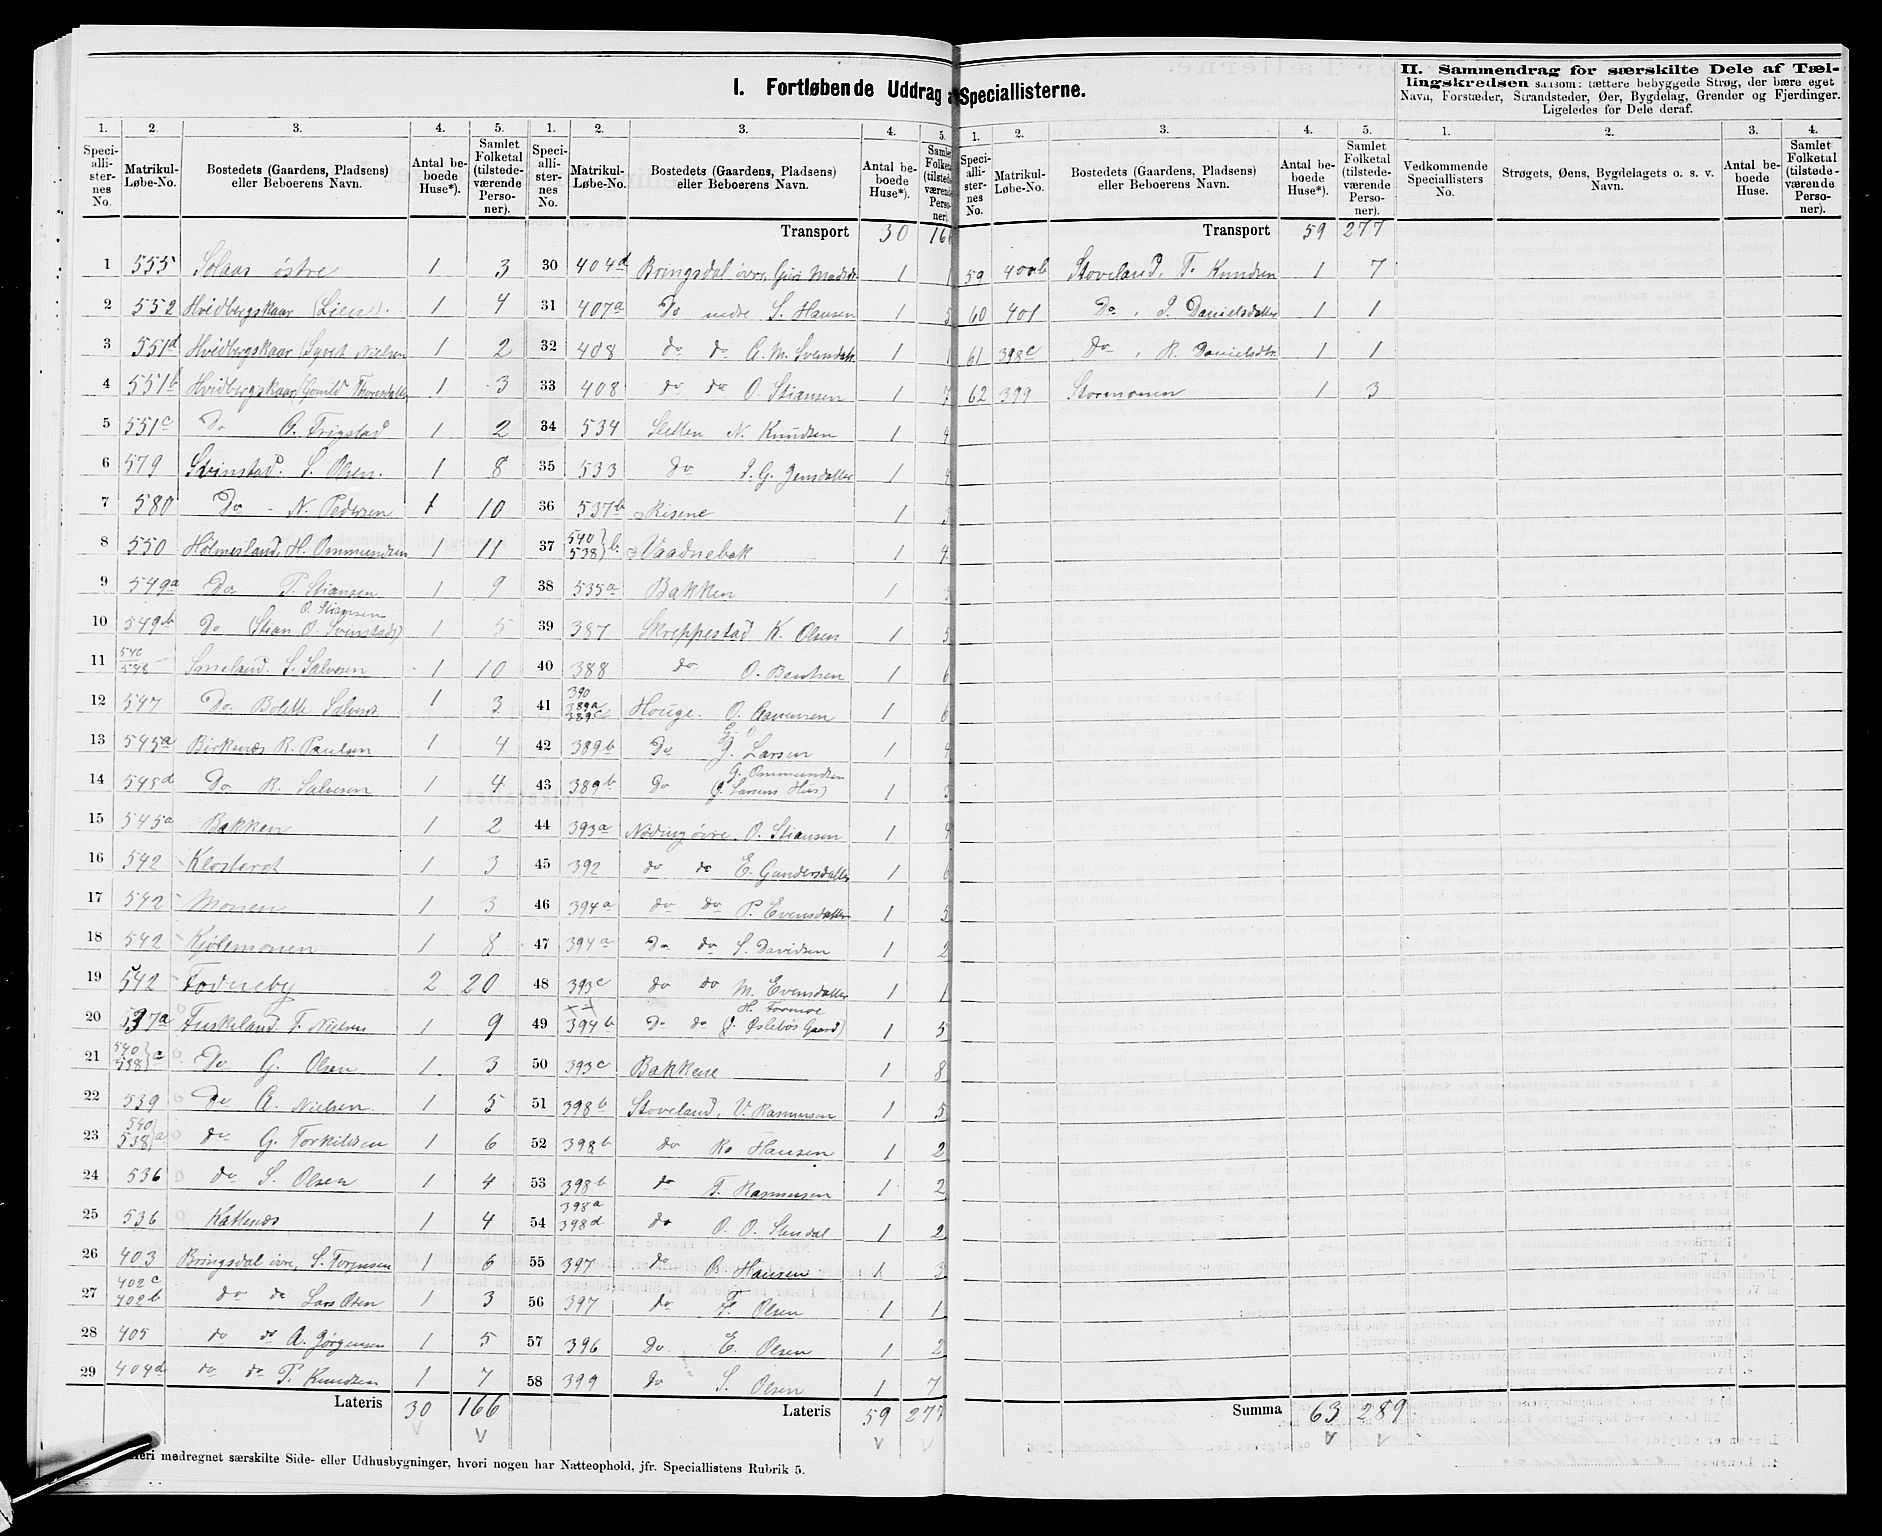 I. Fortløbende Uddrag af Speciallisterne.
II. Sammendrag for særskilte Dele af Tæl-
lingskredsen saasom: tættere bebyggede Strøg, der bære eget
Navn, Forstæder, Strandsteder, Øer, Bygdelag, Grender og Fjerdinger.
Ligeledes for Dele deraf.
1. 2. 3. 4. 5. 1. 2. 3. 4. 5. 1. 2. 3. 4. 5. 1. 2. 3. 4.
Speci-alli-ster-nes No. Matrikul-Løbe-No. Bostedets (Gaardens, Pladsens) eller Beboerens Navn. Antal be-boede Huse*). Samlet Folketal (tilstede-værende Perso-ner).
Speci-alli-ster-nes No. Matrikul-Løbe-No. Bostedets (Gaardens, Pladsens) eller Beboerens Navn. Antal be-boede Huse*). Samlet Folketal (tilstede-værende Perso-ner).
Speci-alli-ster-nes No. Matrikul-Løbe-No. Bostedets (Gaardens, Pladsens) eller Beboerens Navn. Antal be-boede Huse*). Samlet Folketal (tilstede-værende Perso-ner).
Vedkommende Speciallisters No. Strøgets, Øens, Bygdelagets o. s. v. Navn. Antal be-boede Huse. Samlet Folketal (tilstede-værende Perso-ner).
1 555 Solaas østre 1 3
2 552 Hvidbergskaar (Lien). 1 4
3 551d Hvidbergskaar (Syvert Nielsen 1 2
4 551b Hvidbergskaar (Gunild Thoresdatter 1 3
5 551c Do A. Trigstad 1 2
6 579 Svinstad. S. Olsen. 1 8
7 580 Do - N. Pedersen 1 10
8 550 Holmesland, H. Ommundsen 1 11
9 549a Do P. Stiansen 1 9
O. Stiansen
10 549b Do (Stian O. Svenstads) 1 5
11 546 548 S. Salvesen 1 10
12 547 Do. Bolette Salvesd. 1 3
13 545a Birkenæs R. Paulsen 1 4
14 545d Do R. Salvesen 1 4
15 545a Bakken 1 2
16 542 Klosteret 1 3
17 542 Monen 1 3
18 542 Kjølemonen 1 8
19 542 Fodneby 2 20
20 537a Fuskeland T. Nielsen 1 9
21 540 538 c Do G. Olsen 1 3
22 539 Do A. Nielsen. 1 5
23 540 538 a do G. Torkildsen 1 6
24 536 do S. Olsen 1 4
25 536 Kattenæs 1 4
26 403 Bringsdal øvre, S. Torjusen 1 6
27 402c 402b do do Lars Olsen 1 3
28 405 do do A. Jørgensen 1 5
29 404d do do T. Knudsen 1 7
Lateris 30 166
Transport 30 166
30 404d Bringsdal øvre, Guri Madsdr. 1 1
31 407a Do nedre S. Hansen 1 5
32 408 do do A. M. Svensdatr. 1 1
33 408 do do O. Stiansen 1 7
34 534 Sletten N. Knudsen 1 4
35 533 Do J. G. Jensdatter 1 4
36 537b Risene 1 3
37 540 538 b Vaadnebak 1 4
38 535a Bakken 1 3
39 387 Skreppestad K. Olsen 1 5
40 388 do O. Bentsen 1 6
41 390 389a 389c Houge. O. Aanensen 1 6
42 389b Do J. Larsen 1 4
G. Ommundsen
43 389b Do (J. Larsens Hus) 1 3
44 393a Nøding øvre. O. Stiansen 1 4
45 392 do do E. Gundersdatter 1 6
46 394a do do P. Evensdatter 1 5
47 394a Do do S. Davidsen 1 2
48 393c do do M. Evensdatter 1 1
H. Formoe
49 394b Do do (J. Øslebøs Gaard) 1 5
50 393c Bakkene 1 8
51 398b Stoveland, V. Rasmussen 1 5
52 398b do Ro Hansen 1 2
53 398b do T. Rasmussen 1 2
54 398a 398d do O. O. Stendal 1 2
55 397 do B. Hansen 1 3
56 397 do F. Olsen 1 1
57 396 Do E. Olsen 1 2
58 399 Do S. Olsen 1 7
Lateris 59 277
Transport 59 277
59 400b Stoveland, T. Knudsen 1 7
60 401 Do, J. Danielsdatter 1 1
61 398c Do, R. Danielsdtr. 1 1
62 399 Stormonen 1 3
Summa 63 289
Heri medregnet særskilte Side- eller Udhusbygninger, hvori nogen har Natteophold, jfr. Speciallistens Rubrik 5.